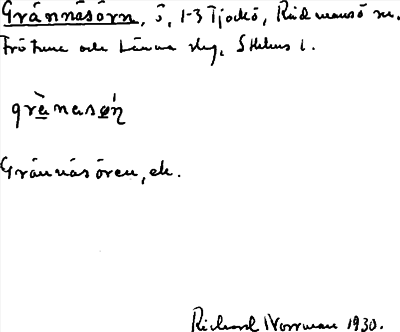 Grännäsörn, ö, 1-3 Tjockö, Rådmansö sn.
Frötuna och Länna skg, Sthlms l.
grä̀nasǿn
Grännäsören, ek.
Richard Norrman 1930.